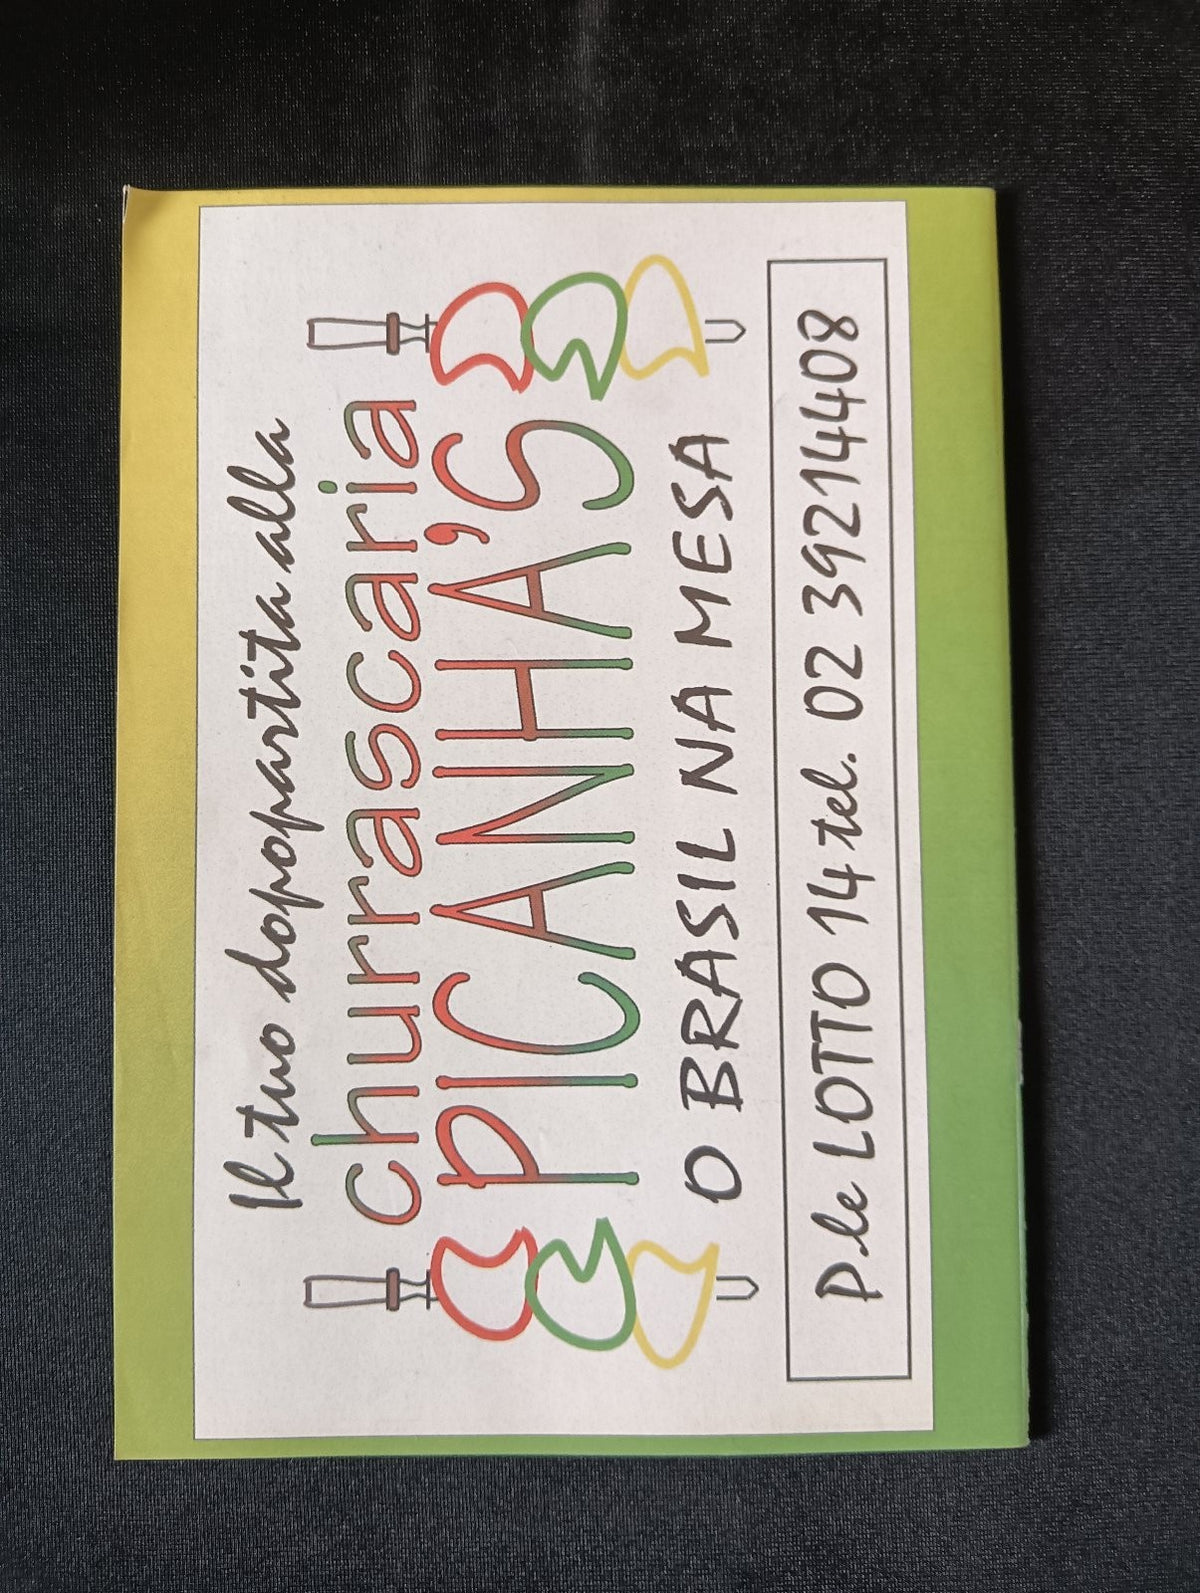 Il tuo dopopartita alla
churrascaria
PICANHA'S
O BRASIL NA MESA
P.le LOTTO 14 tel. 02 39214408